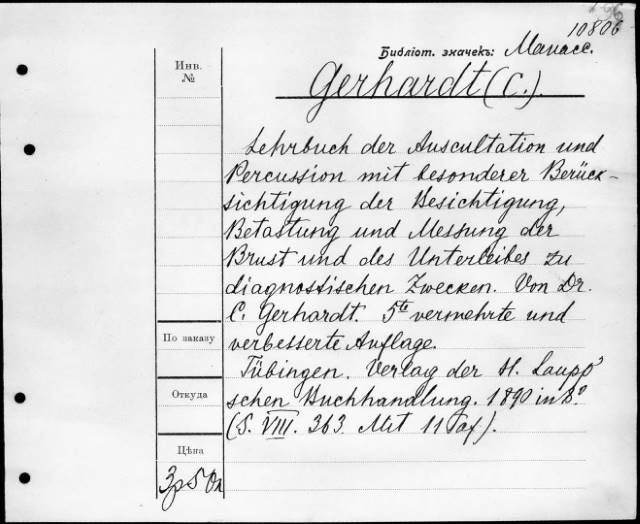 10806
Библіот. значекъ: Манасс.
Инв.
№
Gerhardt (C.).
Lehrbuch der Auscultation und
Percussion mit besonderer Berück-
sichtigung der Besichtigung,
Betastung und Messung der
Brust und des Unterleibes zu
diagnostischen Zwecken. Von Dr.
C. Gerhardt. 5te vermehrte und
verbesserte Auflage.
По заказу
Tübingen. Verlag der H. Laupp'
Откуда
schen Buchhandlung. 1890 in 8°.
(S. VIII. 363. Mit 11 Taf).
Цѣна